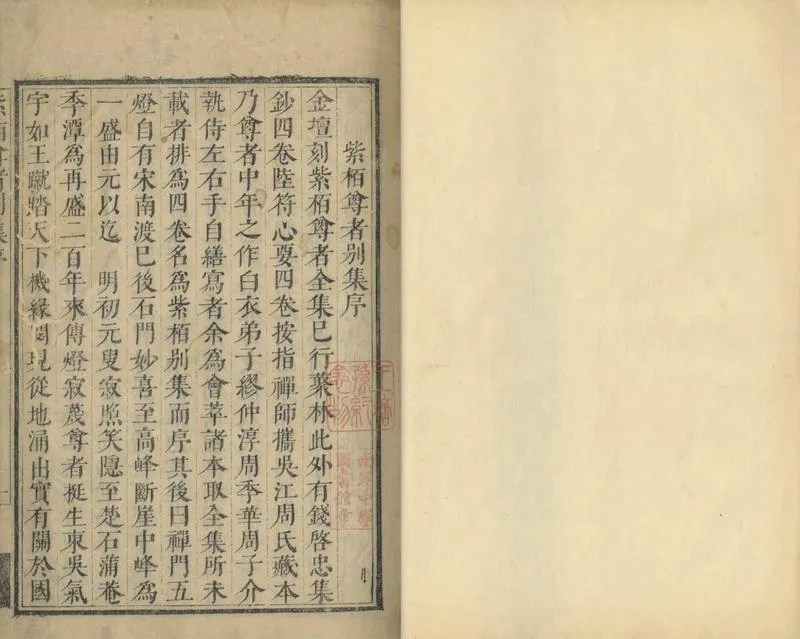 紫栢尊者別集序
金壇刻紫栢尊者全集巳行叢林此外有錢啓忠集
鈔四卷陸符心要四卷按指禪師攜吳江周氏藏本
乃尊者中年之作白衣弟子繆仲淳周季華周子介
執侍左右手自繕寫者余為會萃諸本取全集所未
載者排為四卷名為紫栢別集而序其後曰禪門五
燈自有宋南渡巳後石門妙喜至高峰斷崖中峰為
一盛由元以迄 明初元叟寂照笑隱至楚石蒲菴
季潭為再盛二百年來傳燈寂蔑尊者挺生東吳氣
宇如王蹴踏天下機緣閒現從地涌出實有關於國